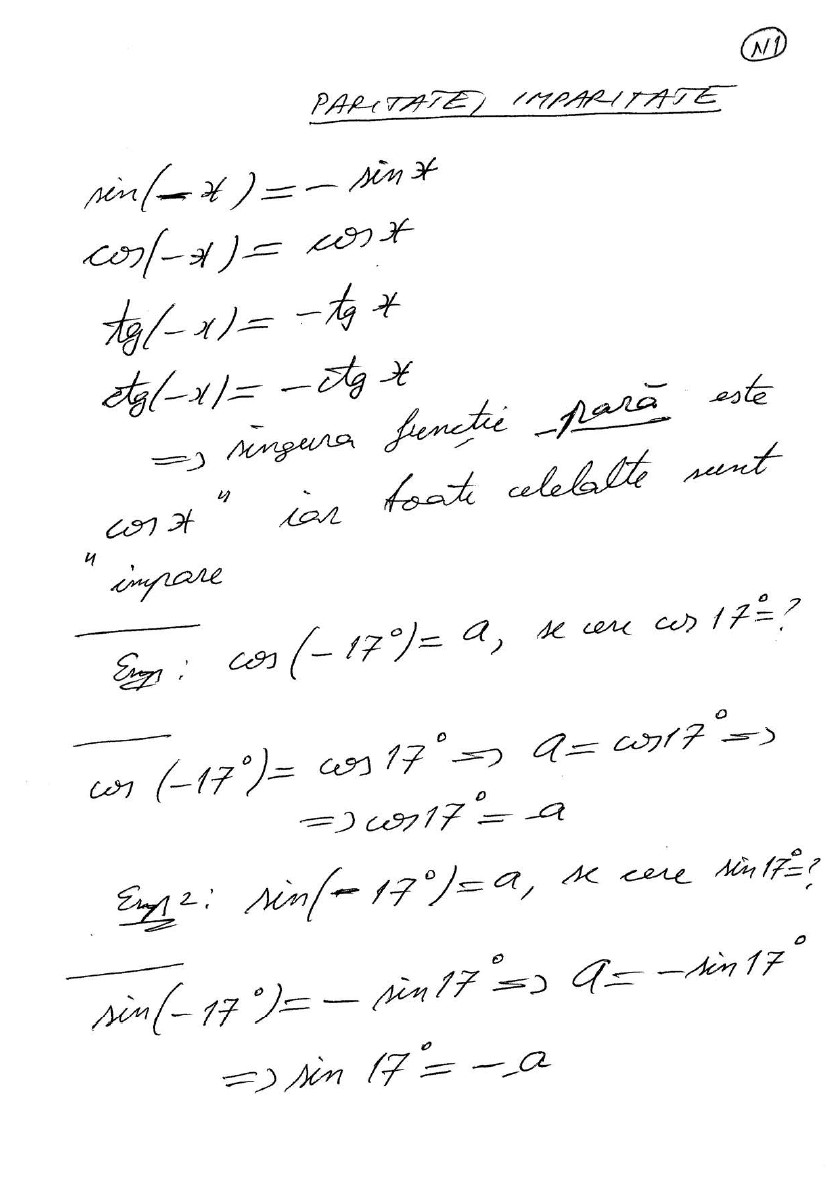 N1
PARITATE, IMPARITATE
sin(-x) = - sin x
cos(-x) = cos x
tg(-x) = -tg x
ctg(-x) = -ctg x
=> singura funcție pară este
cos x " iar toate celelalte sunt
" impare
Exp: cos (-17°) = a, se cere cos 17° = ?
cos (-17°) = cos 17° => a = cos 17° =>
=> cos 17° = a
Exp 2: sin(-17°) = a, se cere sin 17° = ?
sin(-17°) = - sin 17° => a = - sin 17°
=> sin 17° = - a